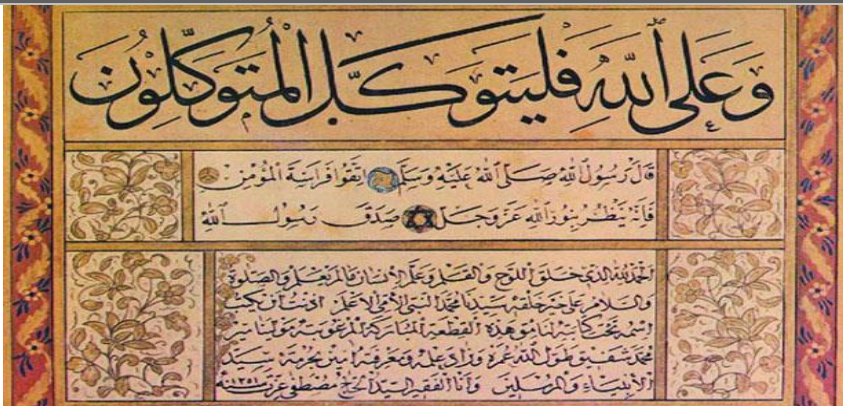 وَعَلَى اللَّهِ فَلْيَتَوَكَّلِ الْمُتَوَكِّلُونَ
قَالَ رَسُولُ اللَّهِ صَلَّى اللَّهُ عَلَيْهِ وَسَلَّمَ اتَّقُوا فَرَاسَةَ الْمُؤْمِنِ
فَإِنَّهُ يَنْظُرُ بِنُورِ اللَّهِ عَزَّ وَجَلَّ صَدَقَ رَسُولُ اللَّهِ
الحمد لله الذي خلق اللوح والقلم وعلم الإنسان ما لم يعلم والصلوة
والسلام على خير خلقه سيدنا محمد النبي الأمي الأعلم أذنت أن يكتب
اسمه تحت كتابته لما نمق هذه القطعة المباركة المرغوبة
محمد شفيق طول الله عمره وزاد علمه ومعرفته آمين بحرمة سيد
الأنبياء والمرسلين وأنا الفقير السيد الحاج مصطفى عزت سنه ١٢٥١